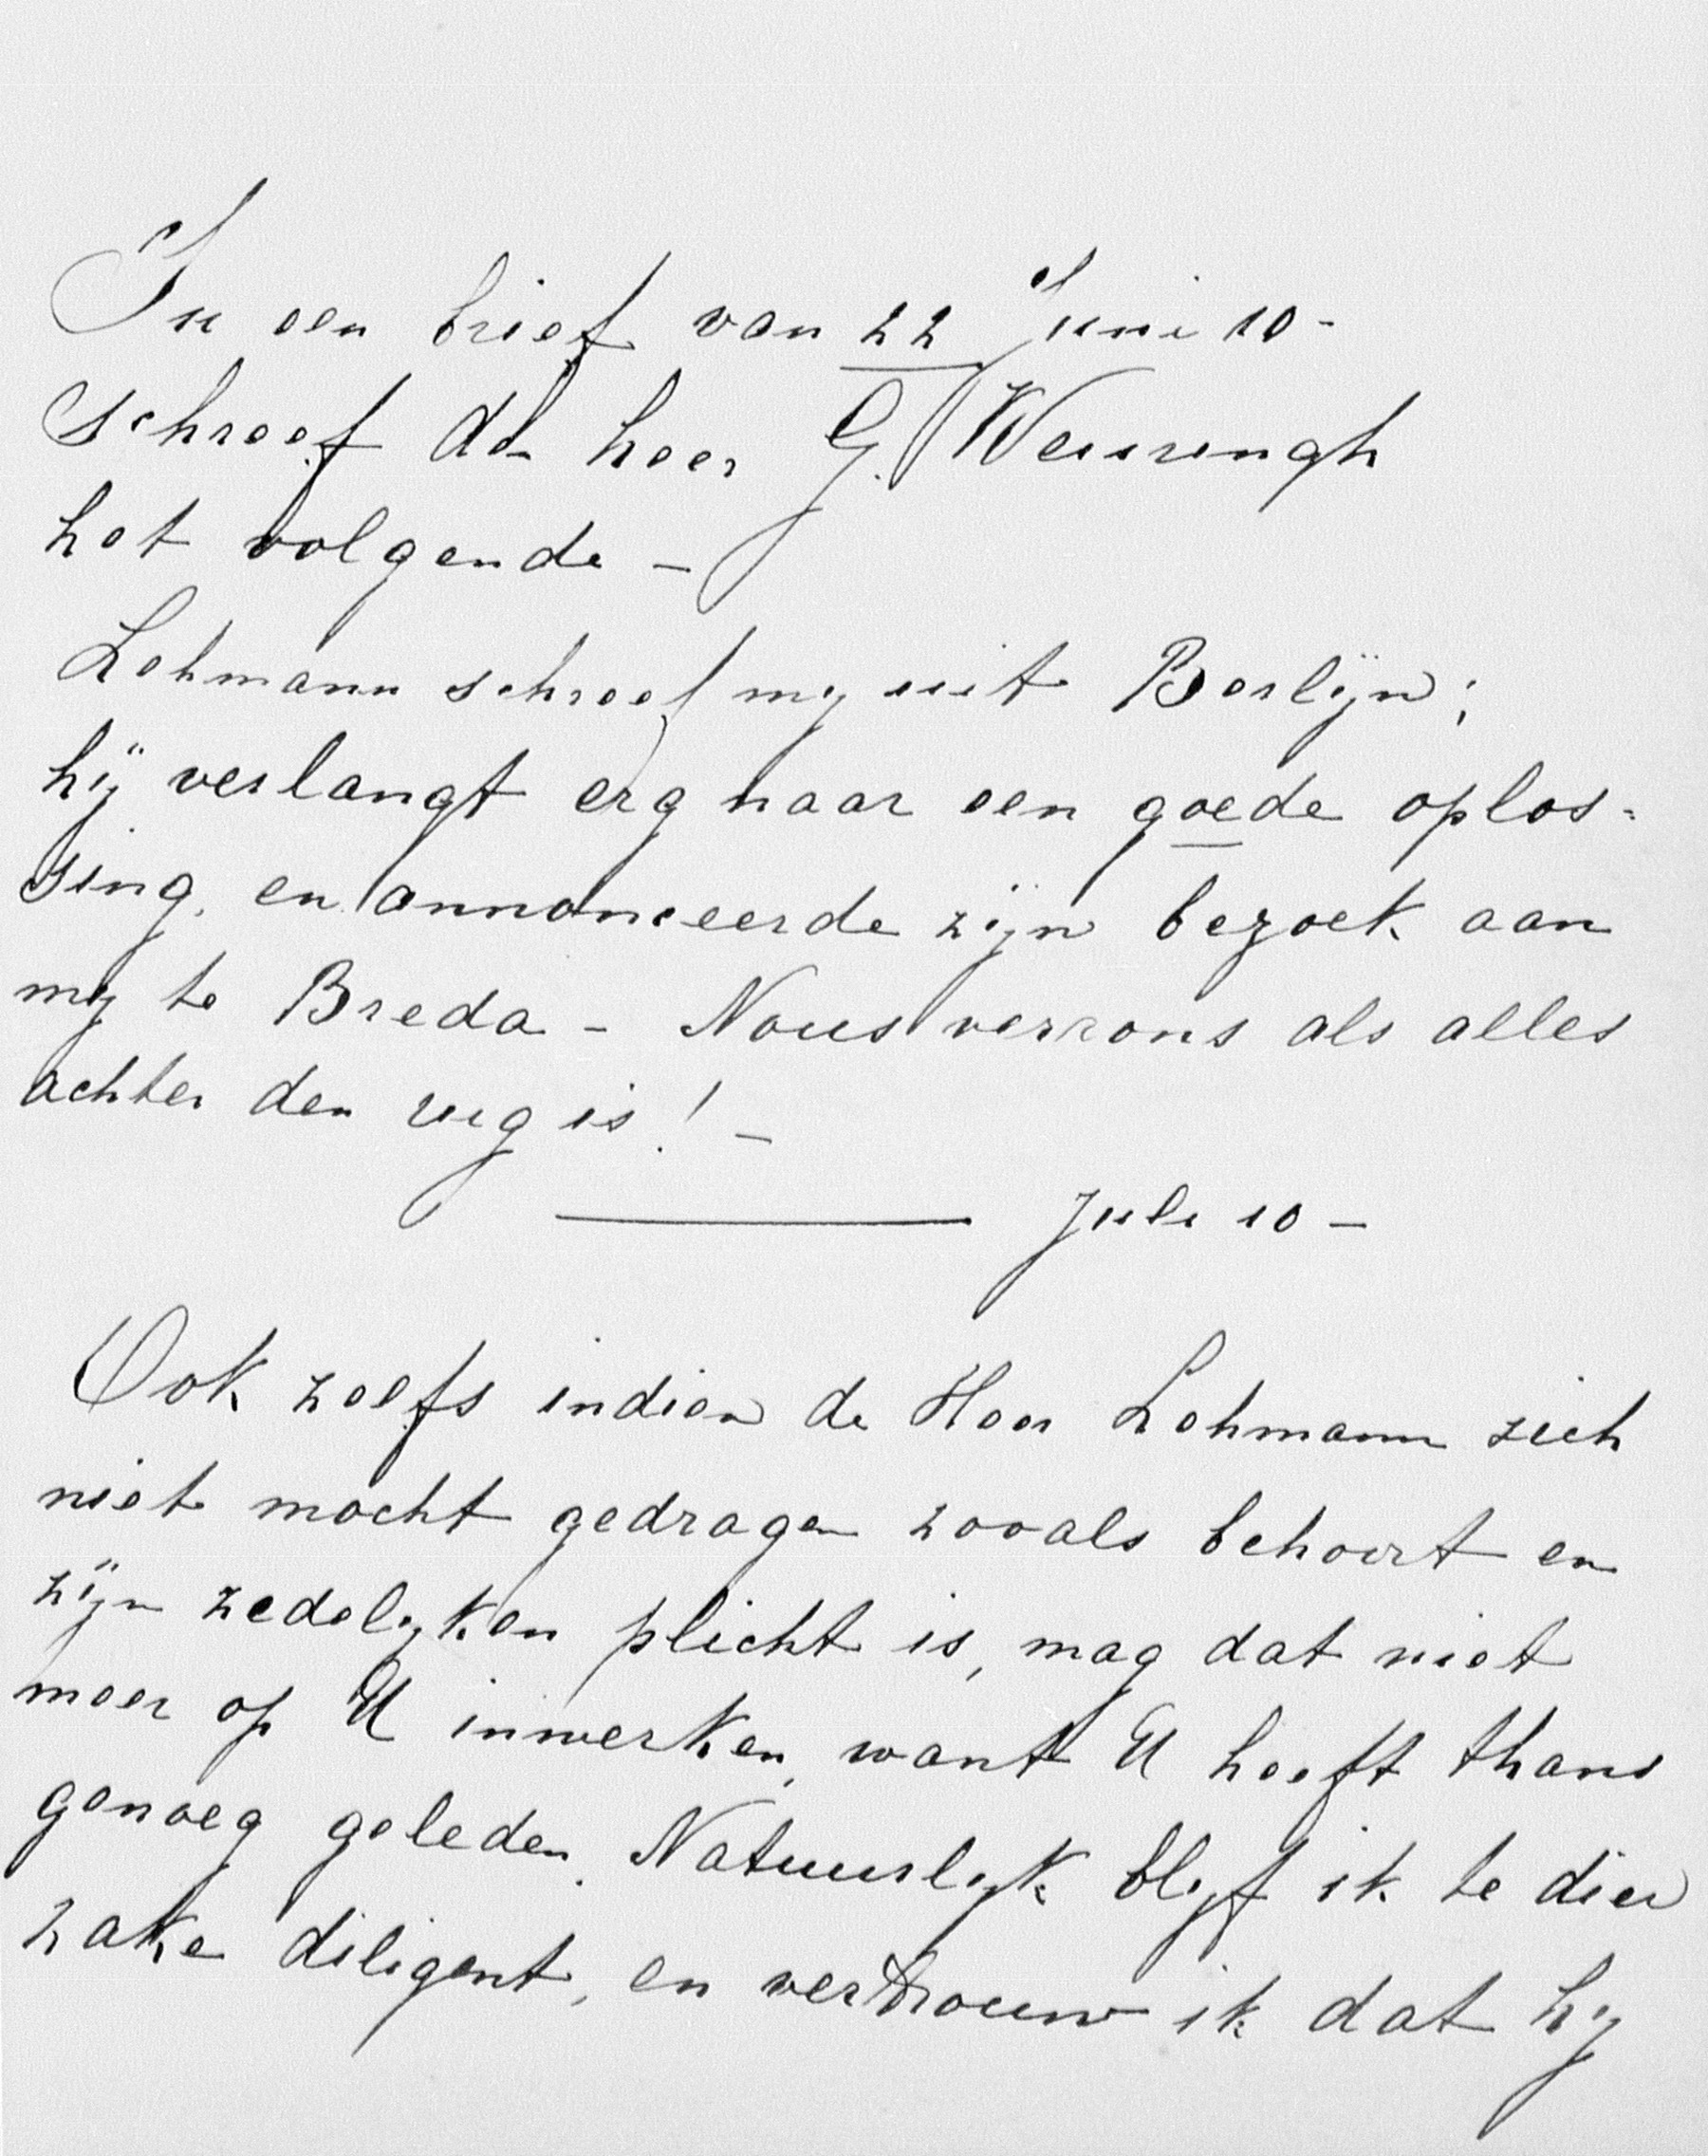 In een brief van 22 Juni 10-
schreef de heer G. Weurengh
het volgende -
Lohmann schreef my uit Berlijn;
hij verlangt erg naar een goede oplos=
sing, en annonceerde zijn bezoek aan
my te Breda - Nous verrons als alles
achter den rug is! -
Juli 10 -
Ook zelfs indien de Heer Lohmann zich
niet mocht gedragen zooals behoort en
zijn zedelyken plicht is, mag dat niet
meer op U inwerken, want U heeft thans
genoeg geleden. Natuurlyk blyf ik te dier
zake diligent, en vertrouw ik dat hy